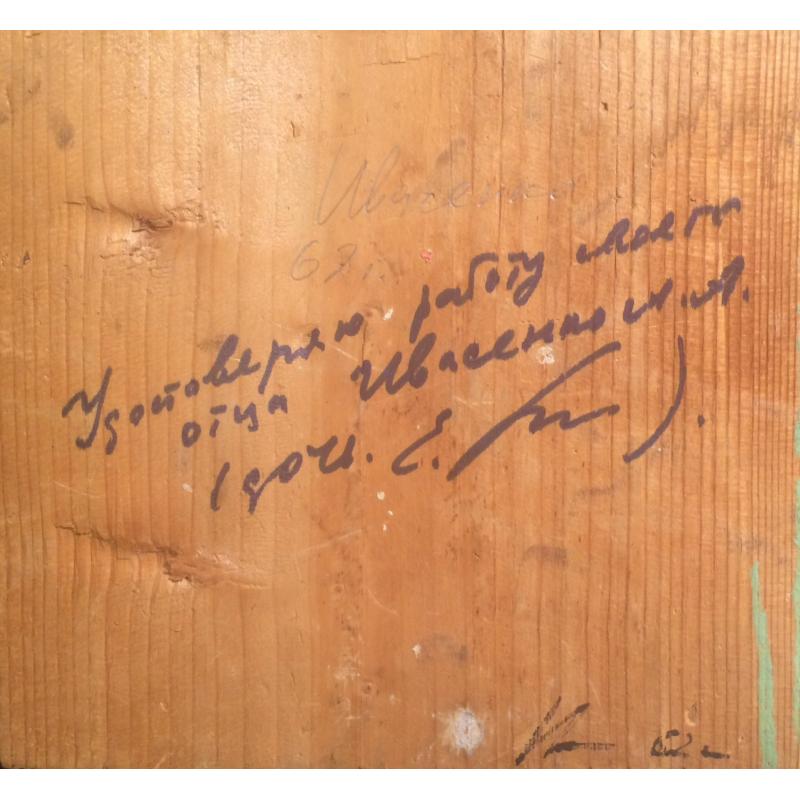 Ивасенко
67 г.
Удостоверяю работу моего
отца Ивасенко М.А.
(дочь. Е.        ).